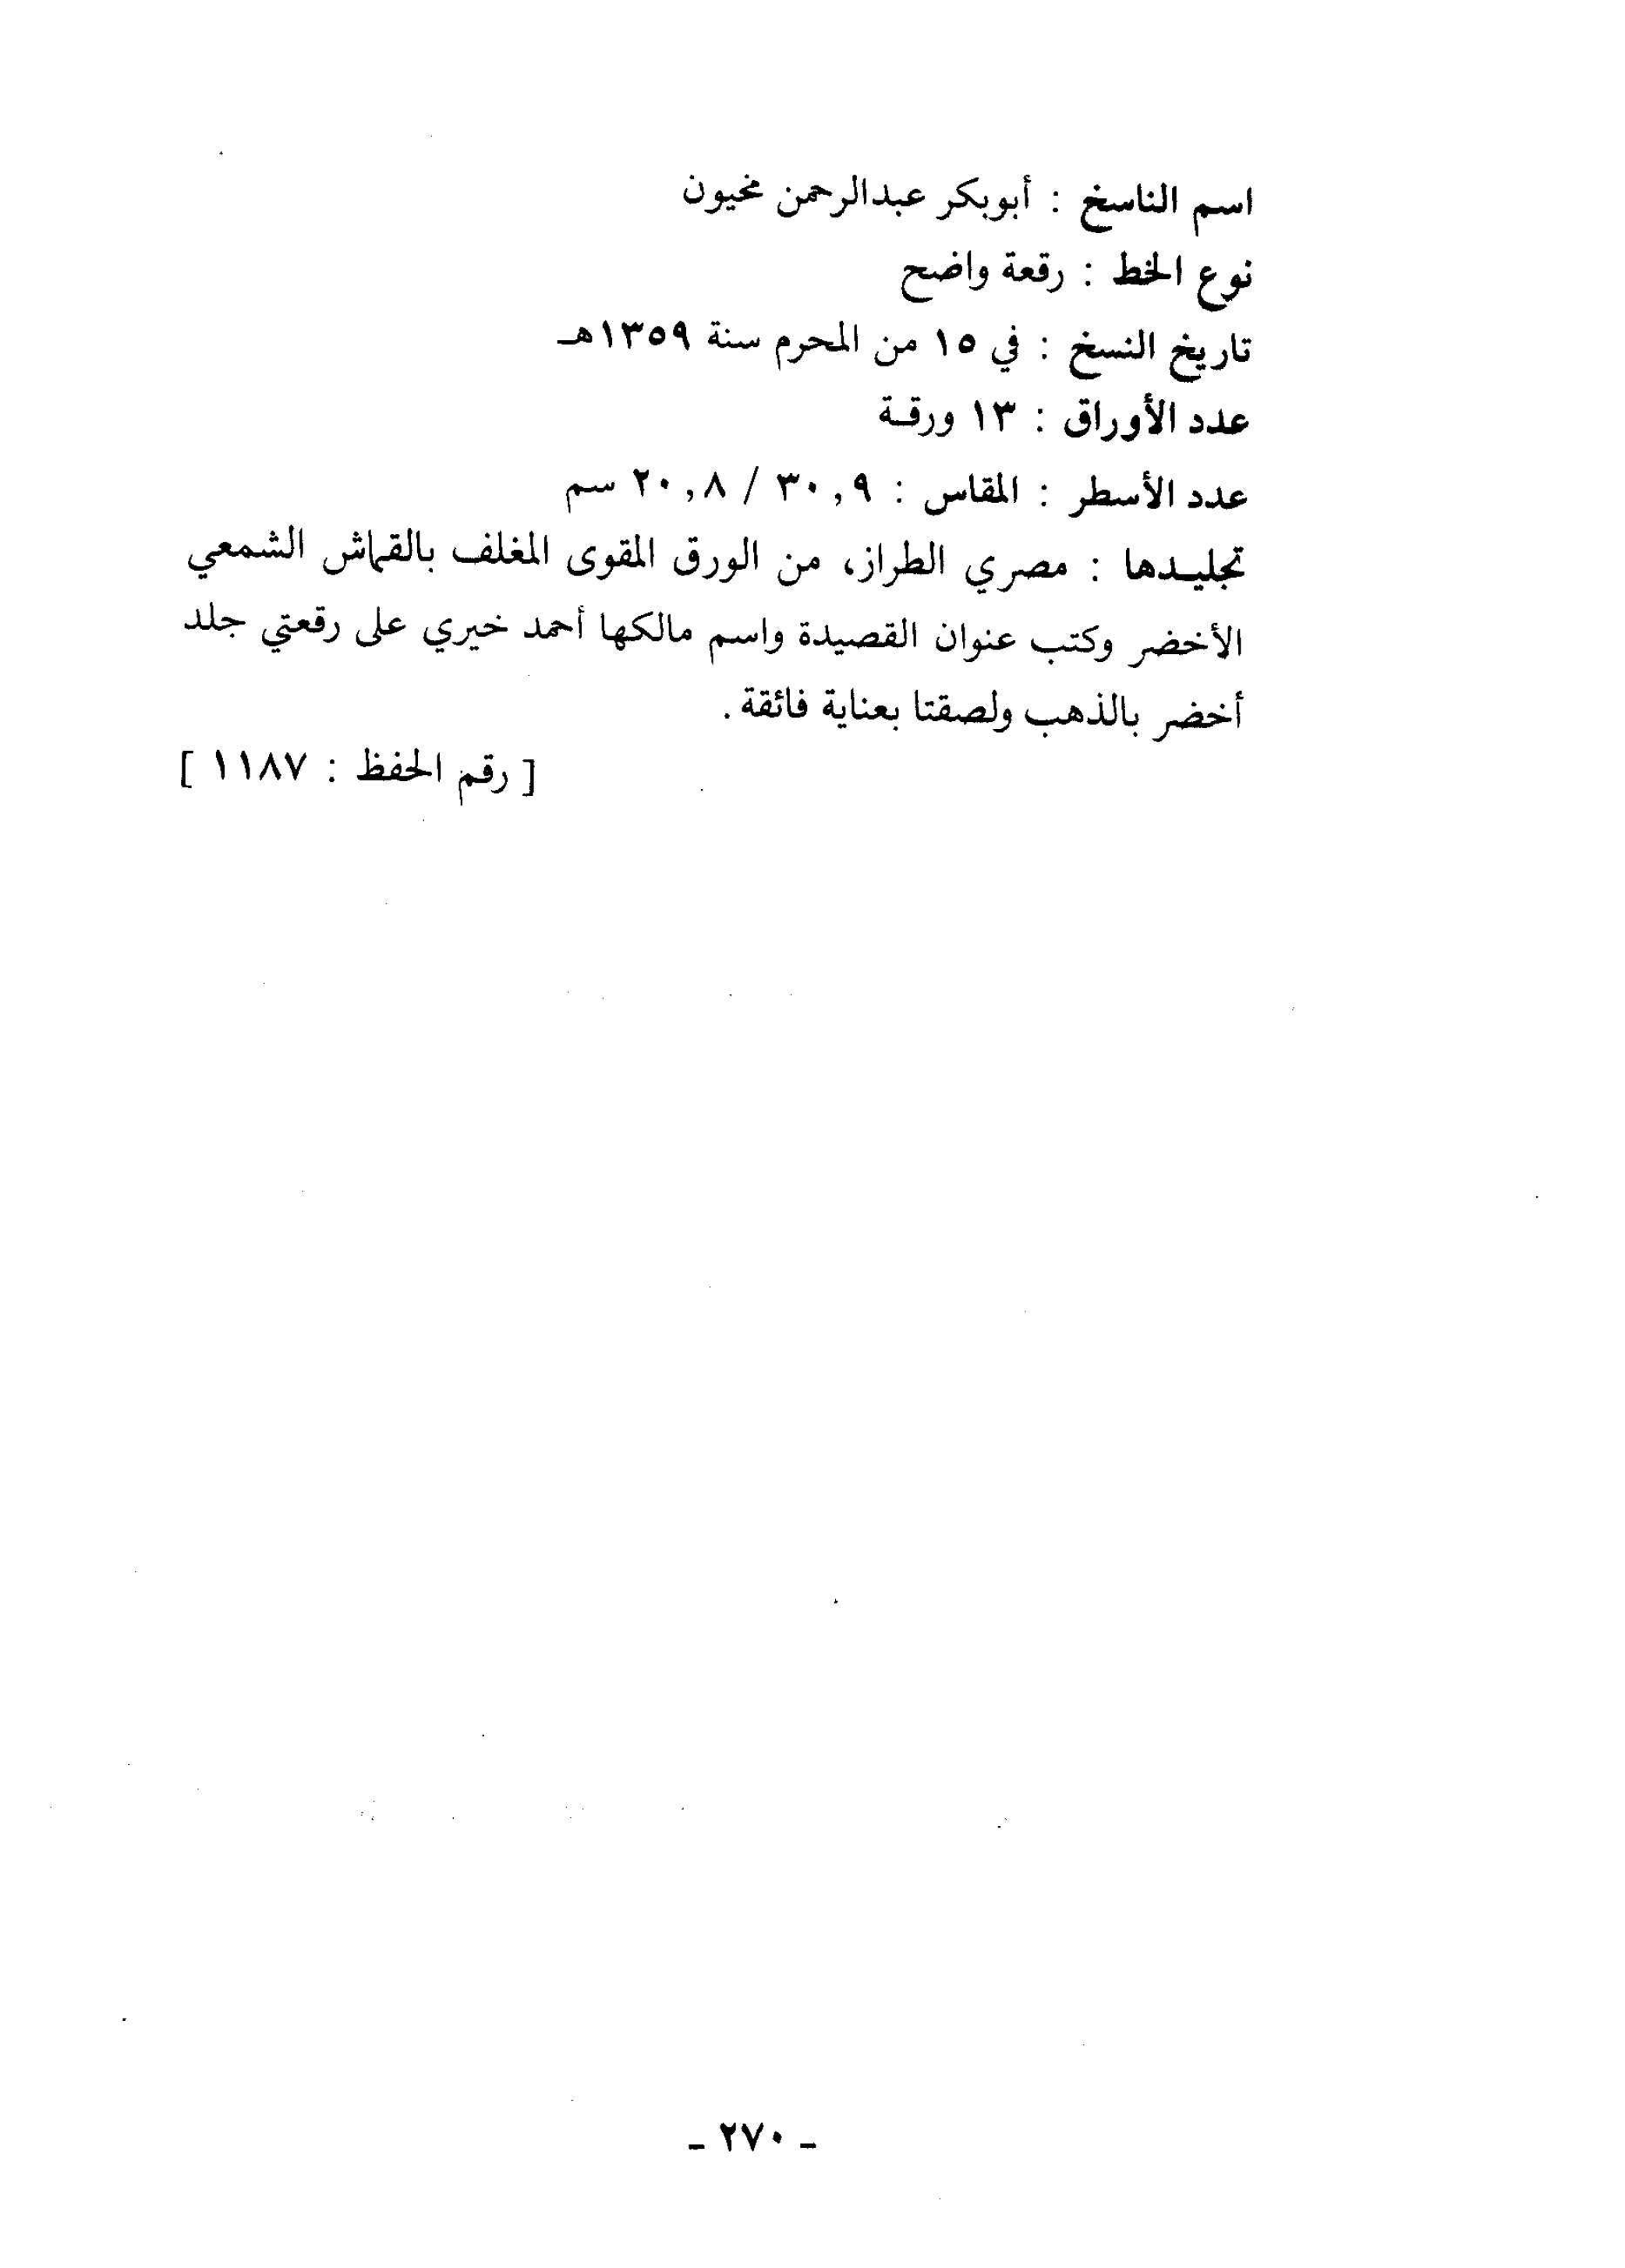 اسم الناسخ : أبوبكر عبدالرحمن مخيون
نوع الخط : رقعة واضح
تاريخ النسخ : في ١٥ من المحرم سنة ١٣٥٩هـ
عدد الأوراق : ١٣ ورقـة
عدد الأسطر : المقاس : ٣٠,٩ / ٢٠,٨ سم
تجليـدها : مصري الطراز، من الورق المقوى المغلف بالقماش الشمعي
الأخضر وكتب عنوان القصيدة واسم مالكها أحمد خيري على رقعتي جلد
أخضر بالذهب ولصقتا بعناية فائقة .
[ رقم الحفظ : ١١٨٧ ]
ـ ٢٧٠ ـ